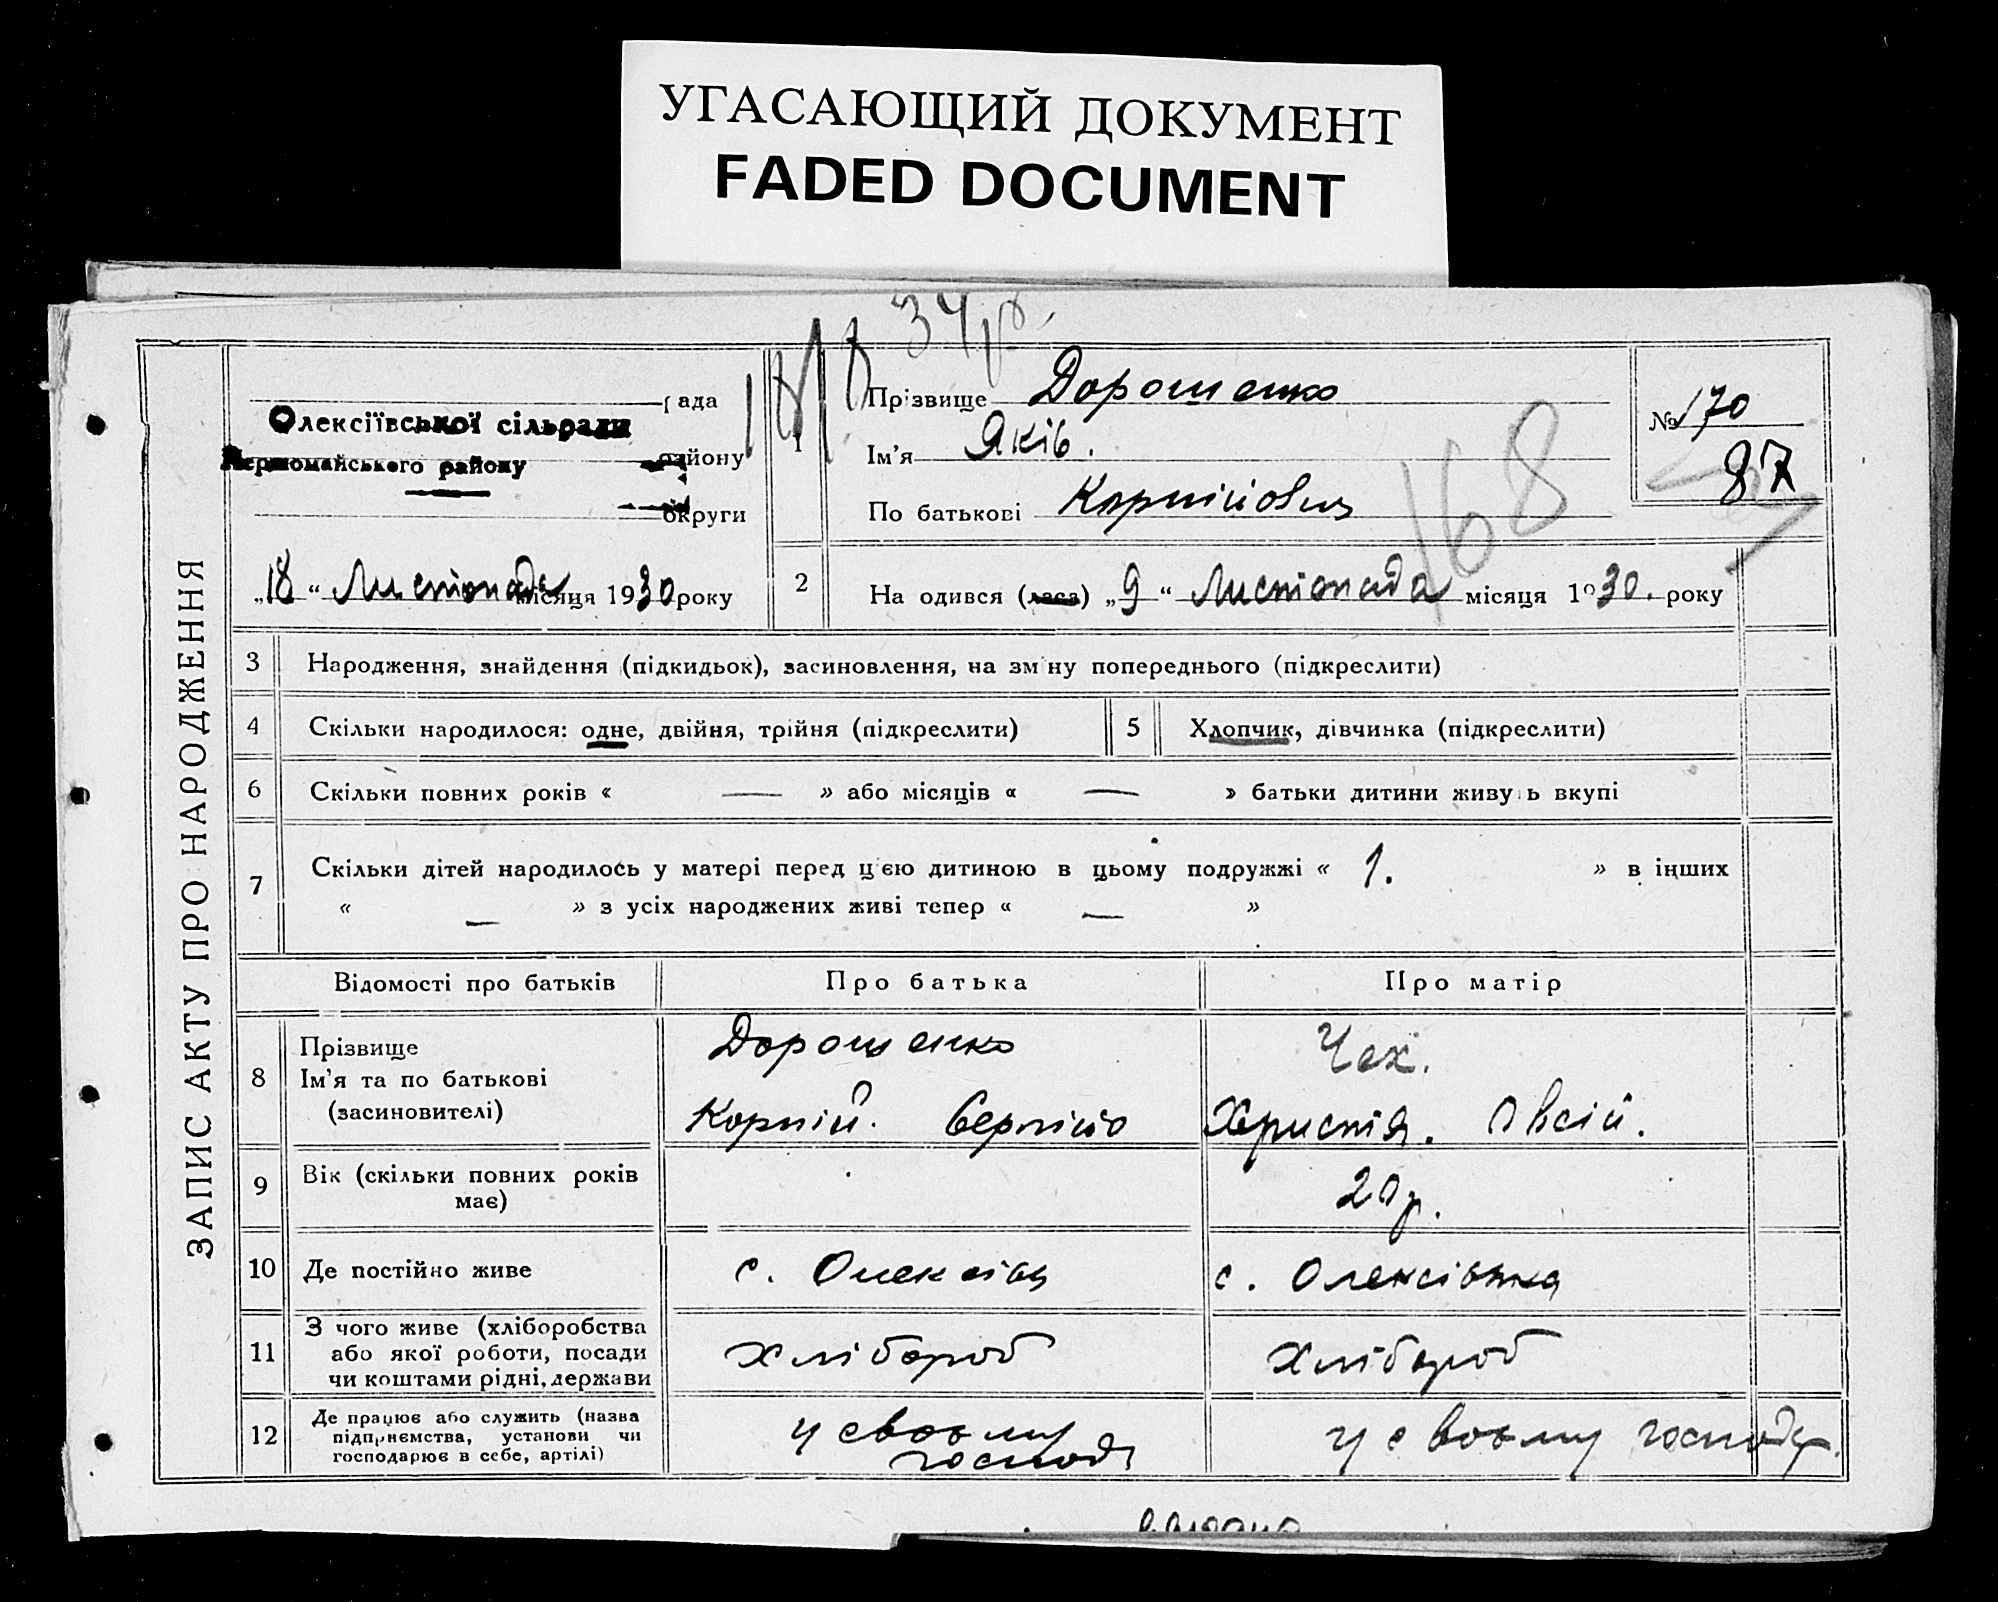 УГАСАЮЩИЙ ДОКУМЕНТ
FADED DOCUMENT
ЗАПИС АКТУ ПРО НАРОДЖЕННЯ
рада
Олексіївської сільради
Первомайського району
району
округи
„18“ Листопада місяця 1930 року
1
Прізвище Дорошенко
Ім’я Яків.
По батькові Корнійович
№ 170
87
168
2
На одився (лася) „9“ Листопада місяця 1930. року
3
Народження, знайдення (підкидьок), засиновлення, на зміну попереднього (підкреслити)
4
Скільки народилося: одне, двійня, трійня (підкреслити)
5
Хлопчик, дівчинка (підкреслити)
6
Скільки повних років « — » або місяців « — » батьки дитини живуть вкупі
7
Скільки дітей народилось у матері перед цією дитиною в цьому подружжі « 1. » в інших
« — » з усіх народжених живі тепер « — »
Відомості про батьків
Про батька
Про матір
8
Прізвище
Ім’я та по батькові
(засиновителі)
Дорошенко
Корній. Сергійо
Чех.
Христія. Овсій.
9
Вік (скільки повних років
має)
20 р.
10
Де постійно живе
с. Олексіїв
с. Олексіївка
11
З чого живе (хліборобства
або якої роботи, посади
чи коштами рідні, держави
хлібороб
хлібороб
12
Де працює або служить (назва
підприємства, установи чи
господарює в себе, артілі)
у своєму
господ
у своєму господ.